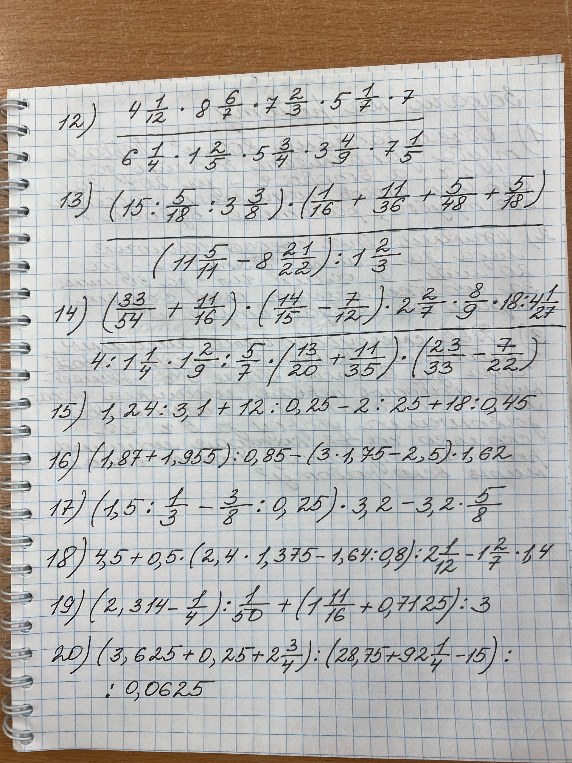 12) 4 1/12 · 8 6/7 · 7 2/3 · 5 1/7 · 7
6 1/4 · 1 2/5 · 5 3/4 · 3 4/9 · 7 1/5
13) (15 : 5/18 : 3 3/8) · (1/16 + 11/36 + 5/48 + 5/18)
(11 5/11 − 8 21/22) : 1 2/3
14) (33/54 + 11/16) · (14/15 − 7/12) · 2 2/7 · 8/9 · 18 : 4 1/27
4 : 1 1/4 · 1 2/9 : 5/7 · (13/20 + 11/35) · (23/33 − 7/22)
15) 1,24 : 3,1 + 12 : 0,25 − 2 : 25 + 18 : 0,45
16) (1,87 + 1,955) : 0,85 − (3 · 1,75 − 2,5) · 1,62
17) (1,5 : 1/3 − 3/8 : 0,25) · 3,2 − 3,2 · 5/8
18) 4,5 + 0,5 · (2,4 · 1,375 − 1,64 : 0,8) : 2 1/12 − 1 2/7 · 1,4
19) (2,314 − 1/4) : 1/50 + (1 11/16 + 0,7125) : 3
20) (3,625 + 0,25 + 2 3/4) : (28,75 + 92 1/4 − 15) :
: 0,0625